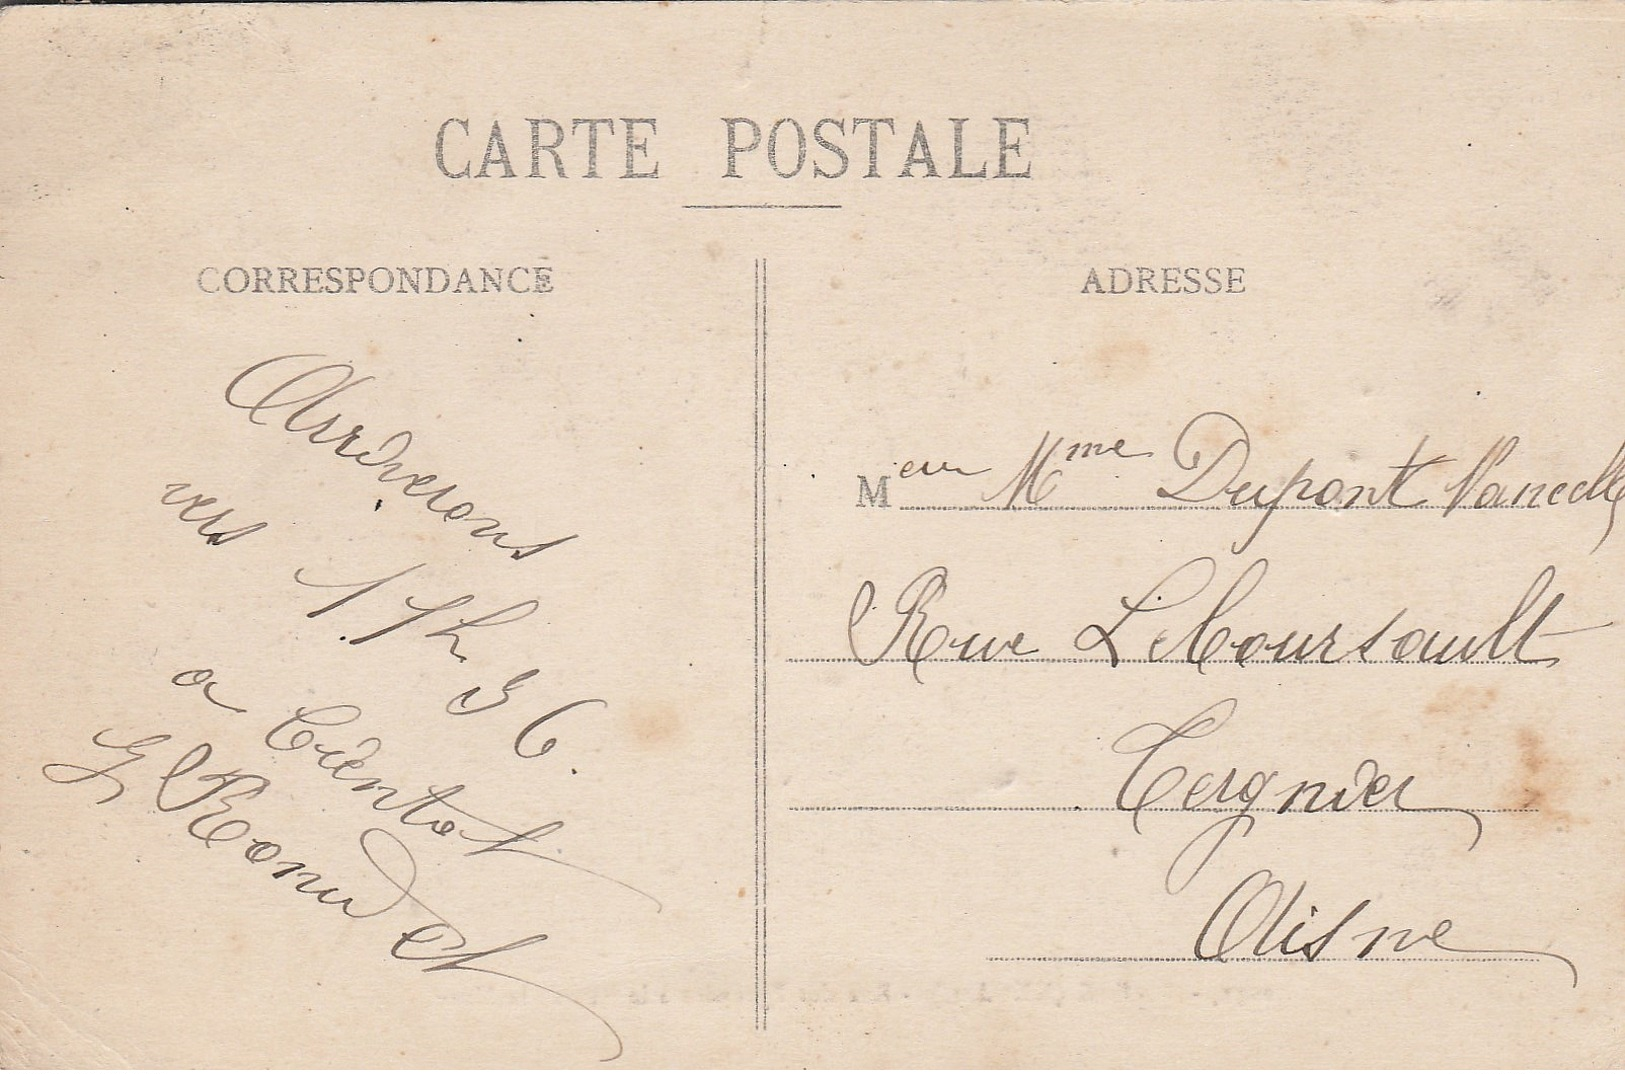 CARTE POSTALE
CORRESPONDANCE
Arriverons
vers 17h 36.
a bientot
G Roundet
ADRESSE
Meur Mme Dupont
Rue Leboursault
Tergnier
Aisne